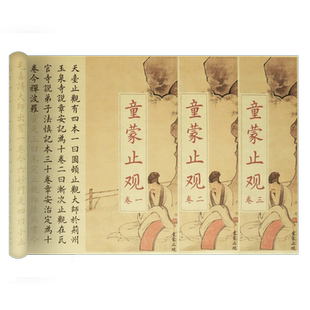 天臺止觀有四本一曰圓頓止觀大師於荊州
玉泉寺説章安記為十卷二曰漸次止觀在瓦
官寺説弟子法慎記本三十卷章安治定為十
卷今禪波羅
童蒙止观
卷一
童蒙止观
卷二
童蒙止观
卷三